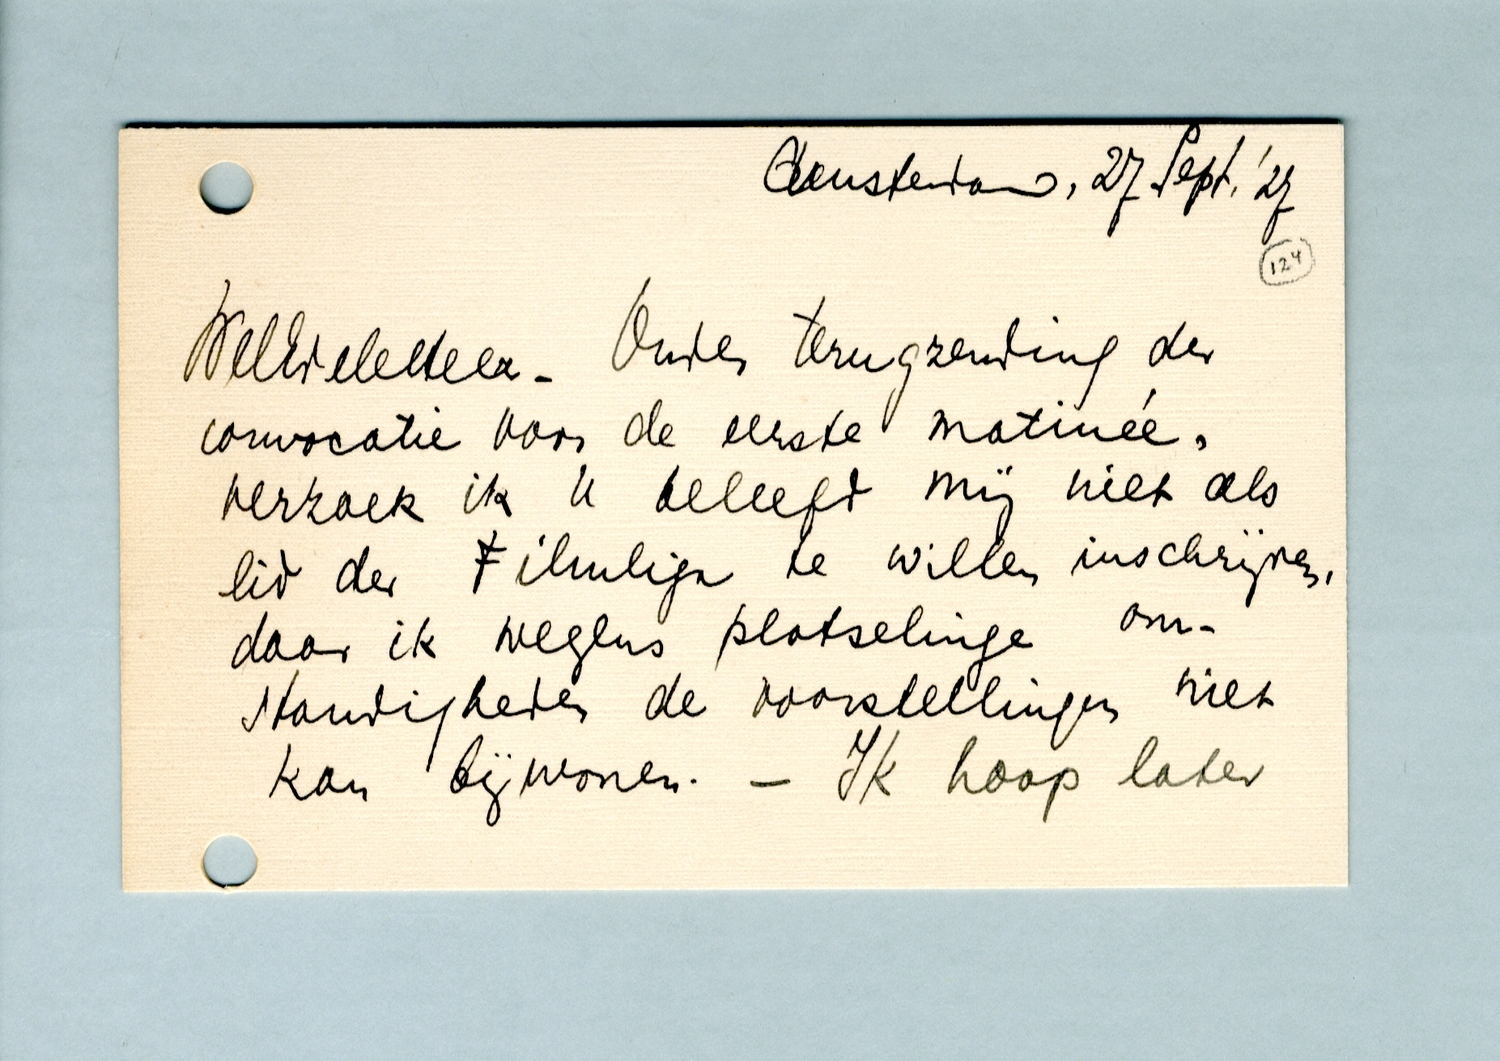 Amsterdam, 27 Sept. '27
124
WelEdeleHeer - Onder terugzending der
convocatie voor de eerste matinée,
verzoek ik U beleefd mij niet als
lid der Filmliga te willen inschrijven,
daar ik wegens plotselinge om-
standigheden de voorstellingen niet
kan bijwonen. - Ik hoop later